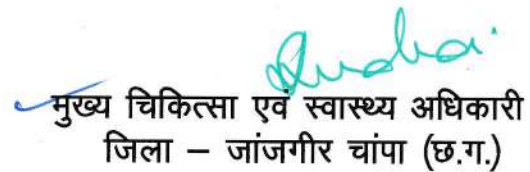 मुख्य चिकित्सा एवं स्वास्थ्य अधिकारी
जिला – जांजगीर चांपा (छ.ग.)